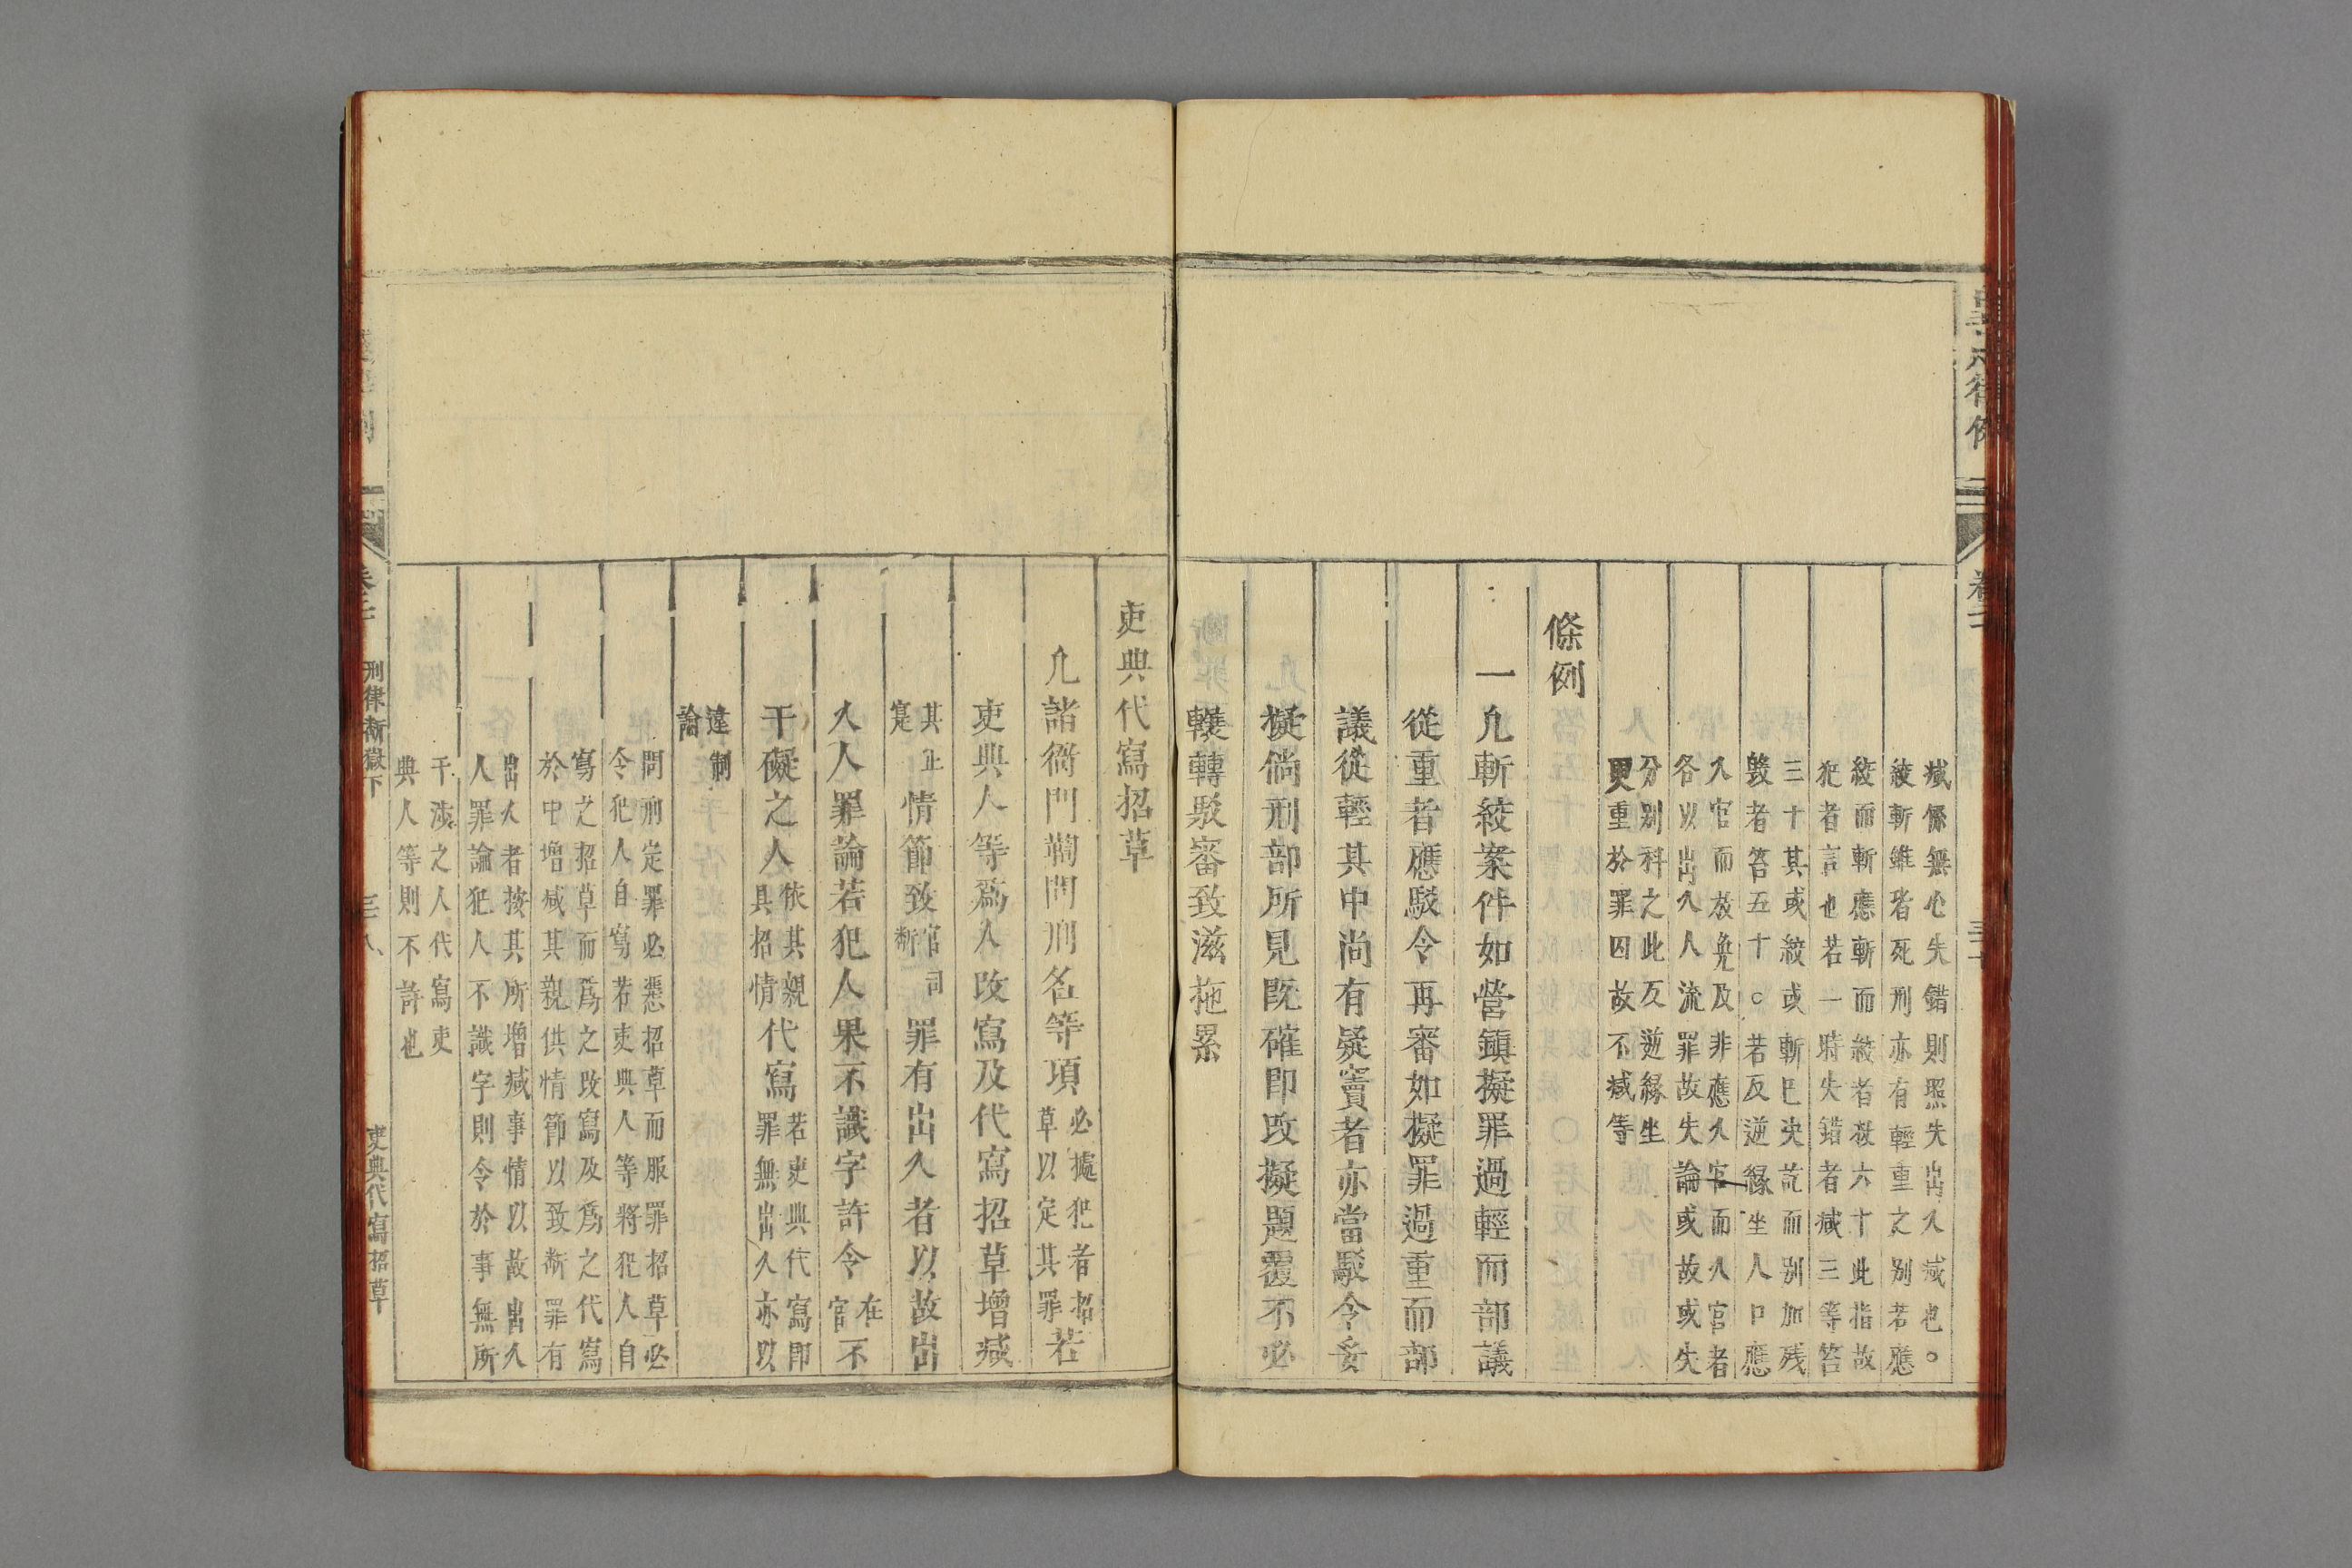 減係無心失錯則照失出入減也。
絞斬雖者死刑亦有輕重之別若應
絞而斬應斬而絞者杖六十此指故
犯者言也若一時失錯者減三等笞
三十其或絞或斬已決訖而別加殘
毀者笞五十○若反逆緣坐人口應
入官而放免及非應入官而入官者
各以出入人流罪故失論或故或失
分別科之此反逆緣坐
更重於罪囚故不減等
條例
一凡斬絞案件如督鎮擬罪過輕而部議
從重者應駁令再審如擬罪過重而部
議從輕其中尚有疑竇者亦當駁令妥
擬倘刑部所見既確即改擬題覆不必
輾轉駁審致滋拖累
吏典代寫招草
凡諸衙門鞫問刑名等項必據犯者招草以定其罪若
吏典人等爲人改寫及代寫招草增減
其正寔情節致官司斷罪有出入者以故出
入人罪論若犯人果不識字許令在官不
干礙之人依其親具招情代寫若吏典代寫即罪無出入亦以
違制論
問刑定罪必憑招草而服罪招草必
令犯人自寫若吏典人等將犯人自
寫之招草而爲之改寫及爲之代寫
於中增減其親供情節以致斷罪有
出入者按其所增減事情以故出入
人罪論犯人不識字則令於事無所
干涉之人代寫吏
典人等則不許也
刑律斷獄下
吏典代寫招草